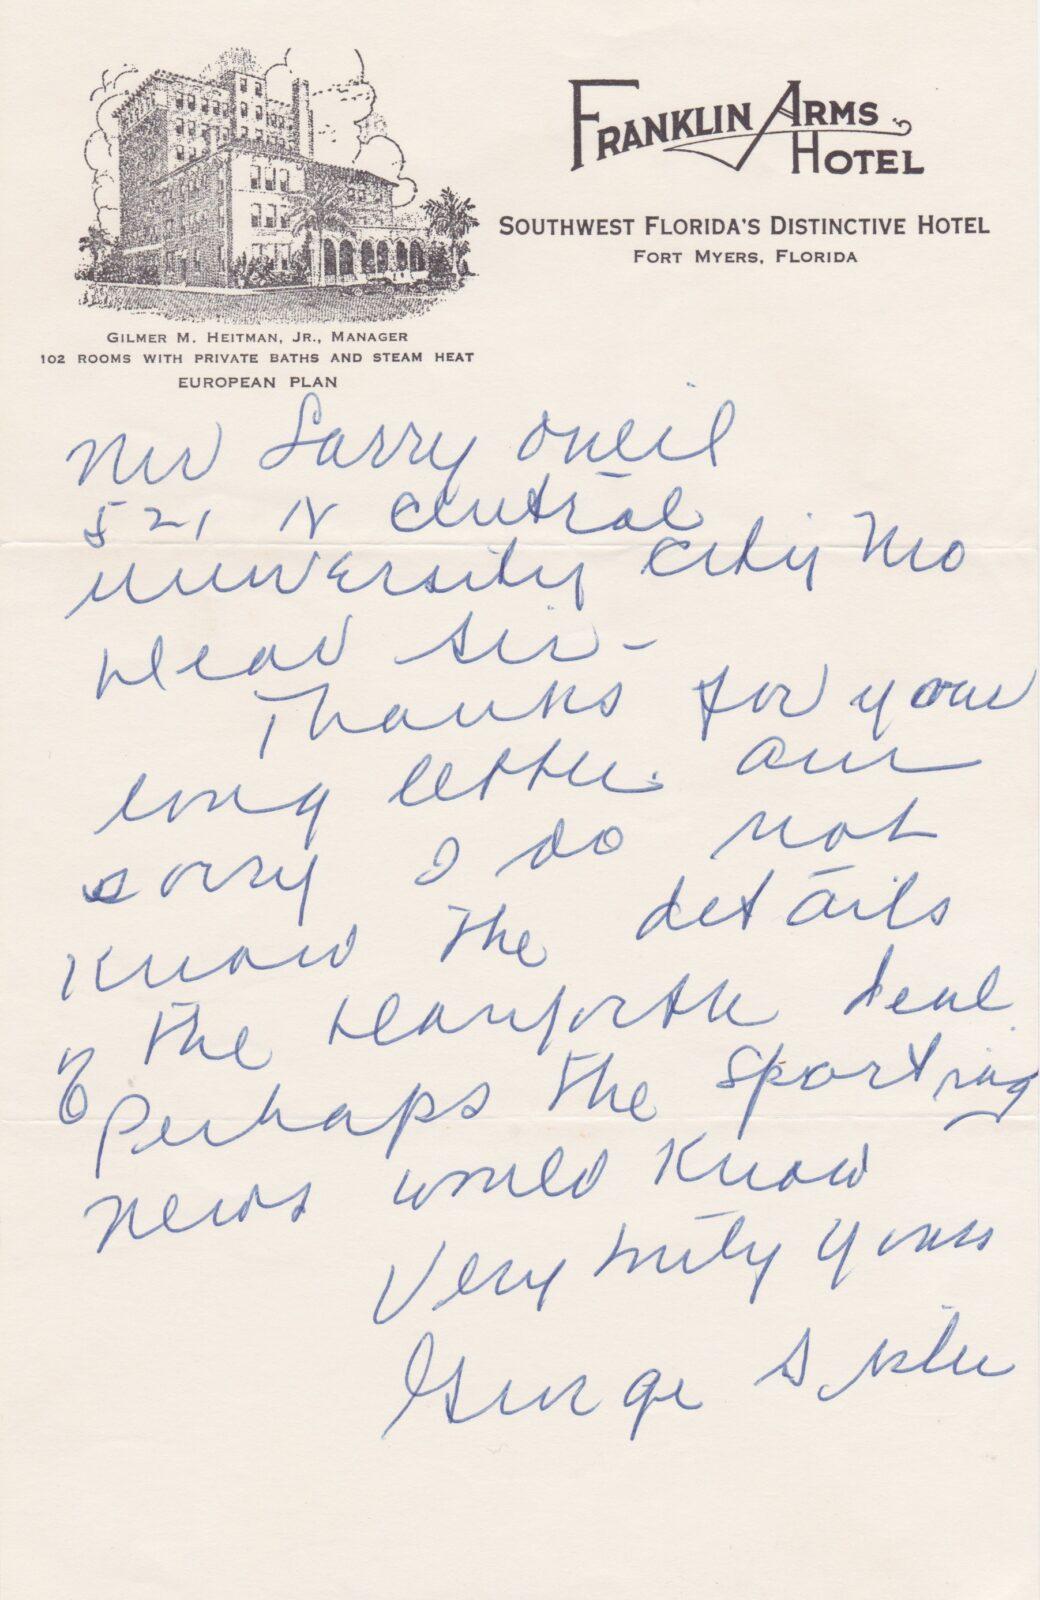 FRANKLIN ARMS HOTEL
SOUTHWEST FLORIDA'S DISTINCTIVE HOTEL
FORT MYERS, FLORIDA
GILMER M. HEITMAN, JR., MANAGER
102 ROOMS WITH PRIVATE BATHS AND STEAM HEAT
EUROPEAN PLAN
Mr Larry Oneil
521 N Central
University City Mo
Dear Sir-
Thanks for your
long letter. Am
sorry I do not
know the details
of the Danforth deal
Perhaps the Sporting
News would know
Very truly yours
George Sisler